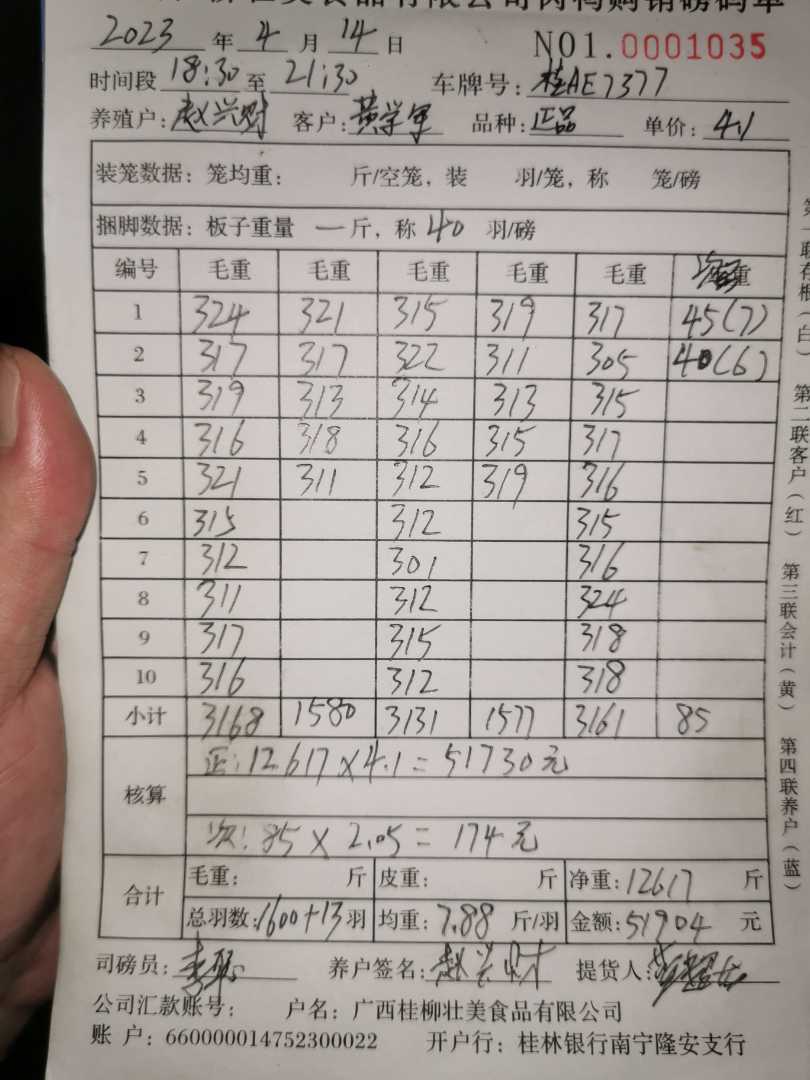 壮美食品有限公司肉鸭购销磅码单
2023 年 4 月 14 日 NO1.0001035
时间段 18:30 至 21:30 车牌号: 桂AE7377
养殖户: 赵兴财 客户: 黄学军 品种: 正品 单价: 4.1
装笼数据: 笼均重: 斤/空笼, 装 羽/笼, 称 笼/磅
捆脚数据: 板子重量 一 斤, 称 40 羽/磅
编号 毛重 毛重 毛重 毛重 毛重 重
1 324 321 315 319 317 45(7)
2 317 317 322 311 305 40(6)
3 319 313 314 313 315
4 316 318 316 315 317
5 321 311 312 319 316
6 315 312 315
7 312 301 316
8 311 312 324
9 317 315 318
10 316 312 318
小计 3168 1580 3131 1577 3161 85
核算 正: 12617×4.1=51730元
次: 85×2.05=174元
合计 毛重: 斤 皮重: 斤 净重: 12617 斤
总羽数: 1600+13 羽 均重: 7.88 斤/羽 金额: 51904 元
司磅员: 养户签名: 赵兴财 提货人:
公司汇款账号: 户名: 广西桂柳壮美食品有限公司
账 户: 660000014752300022 开户行: 桂林银行南宁隆安支行
第一联存根(白) 第二联客户(红) 第三联会计(黄) 第四联养户(蓝)